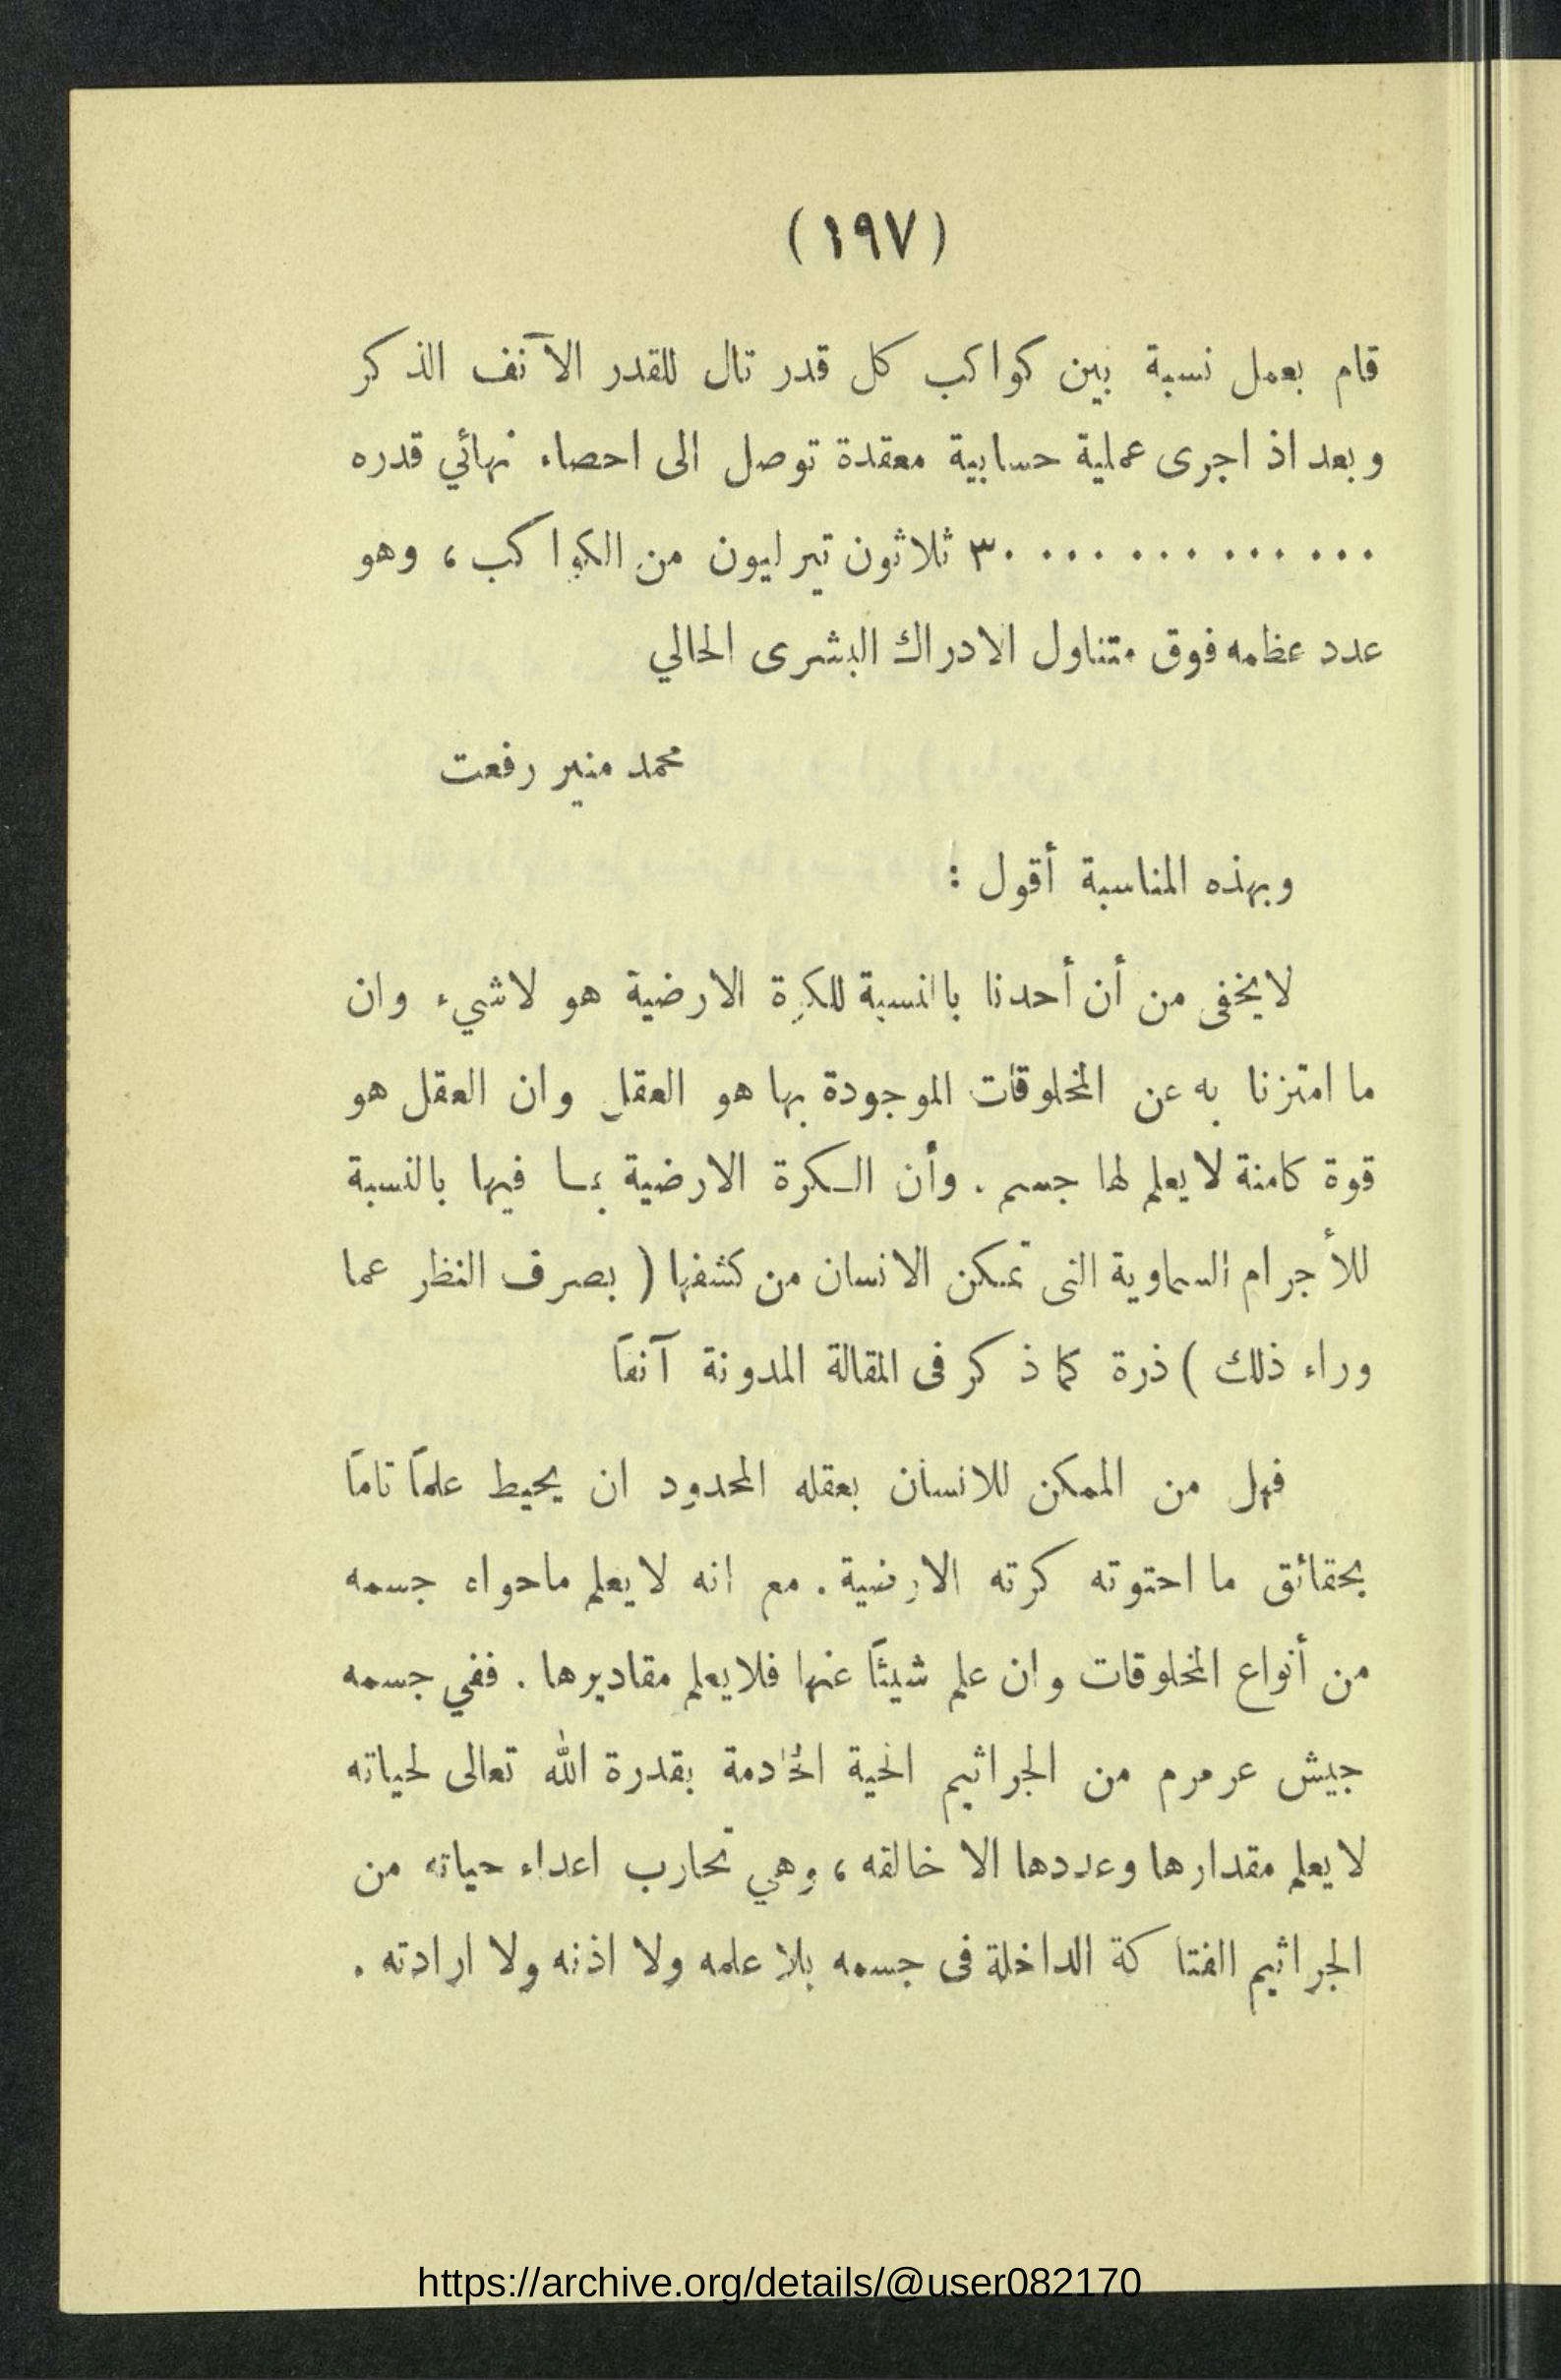 (١٩٧)
قام بعمل نسبة بين كواكب كل قدر تال للقدر الآنف الذكر
وبعد اذ اجرى عملية حسابية معقدة توصل الى احصاء نهائي قدره
٣٠ ٠٠٠ ٠٠٠ ٠٠٠ ٠٠٠ ثلاثون تيرليون من الكواكب ، وهو
عدد عظمه فوق متناول الادراك البشرى الحالي
محمد منير رفعت
وبهذه المناسبة أقول :
لايخفى من أن أحدنا بالنسبة للكرة الارضية هو لاشيء وان
ما امتزنا به عن المخلوقات الموجودة بها هو العقل وان العقل هو
قوة كامنة لايعلم لها جسم . وأن الكرة الارضية بما فيها بالنسبة
للأجرام السماوية التى تمكن الانسان من كشفها ( بصرف النظر عما
وراء ذلك ) ذرة كما ذكر فى المقالة المدونة آنفاً
فهل من الممكن للانسان بعقله المحدود ان يحيط علماً تاماً
بحقائق ما احتوته كرته الارضية . مع انه لايعلم ماحواه جسمه
من أنواع المخلوقات وان علم شيئاً عنها فلايعلم مقاديرها . ففي جسمه
جيش عرمرم من الجراثيم الحية الخادمة بقدرة الله تعالى لحياته
لايعلم مقدارها وعددها الا خالقه ، وهي تحارب اعداء حياته من
الجراثيم الفتاكة الداخلة فى جسمه بلا علمه ولا اذنه ولا ارادته .
https://archive.org/details/@user082170